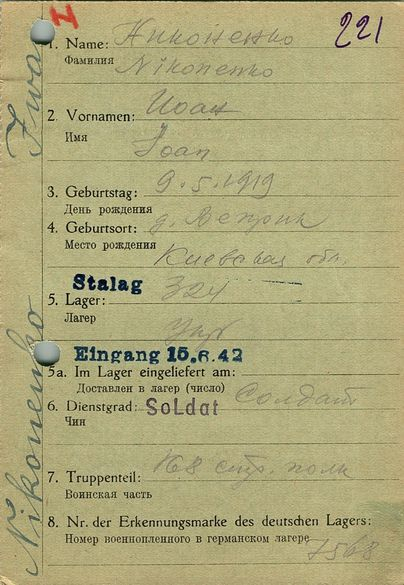 N
221
1. Name: Никоненко
Фамилия Nikonenko
2. Vornamen: Иоан
Имя Joan
3. Geburtstag: 9.5.1919
День рождения
4. Geburtsort: д. Веприк
Место рождения
Киевская обл.
Stalag 324
5. Lager:
Лагерь
Eingang 15.6.42
5a. Im Lager eingeliefert am:
Доставлен в лагерь (число)
6. Dienstgrad: Soldat Солдат
Чин
7. Truppenteil: 168 стр. полк
Воинская часть
8. Nr. der Erkennungsmarke des deutschen Lagers:
Номер военнопленного в германском лагере
7568
Nikonenko Iwan